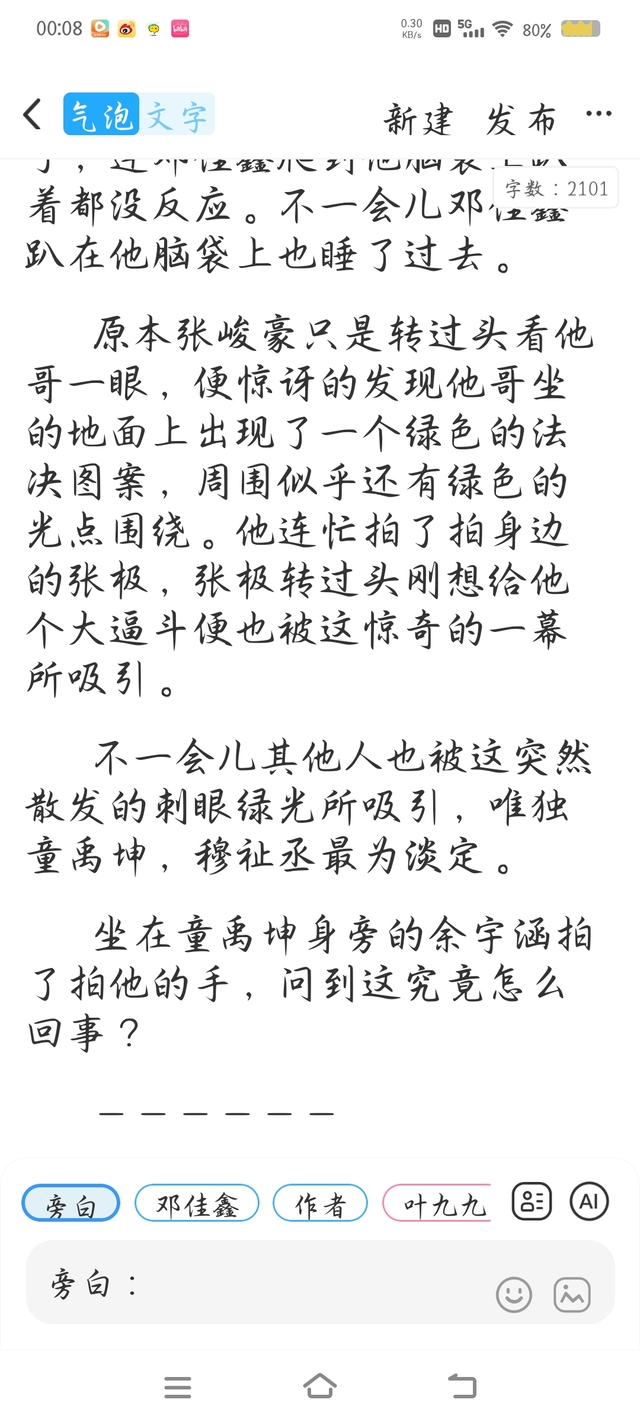 00:08
0.30 KB/s HD 5G 80%
气泡 文字 新建 发布 ...
字数：2101
着都没反应。不一会儿邓佳鑫
趴在他脑袋上也睡了过去。
原本张峻豪只是转过头看他
哥一眼，便惊讶的发现他哥坐
的地面上出现了一个绿色的法
决图案，周围似乎还有绿色的
光点围绕。他连忙拍了拍身边
的张极，张极转过头刚想给他
个大逼斗便也被这惊奇的一幕
所吸引。
不一会儿其他人也被这突然
散发的刺眼绿光所吸引，唯独
童禹坤，穆祉丞最为淡定。
坐在童禹坤身旁的余宇涵拍
了拍他的手，问到这究竟怎么
回事？
— — — — — —
旁白 邓佳鑫 作者 叶九九 AI
旁白：